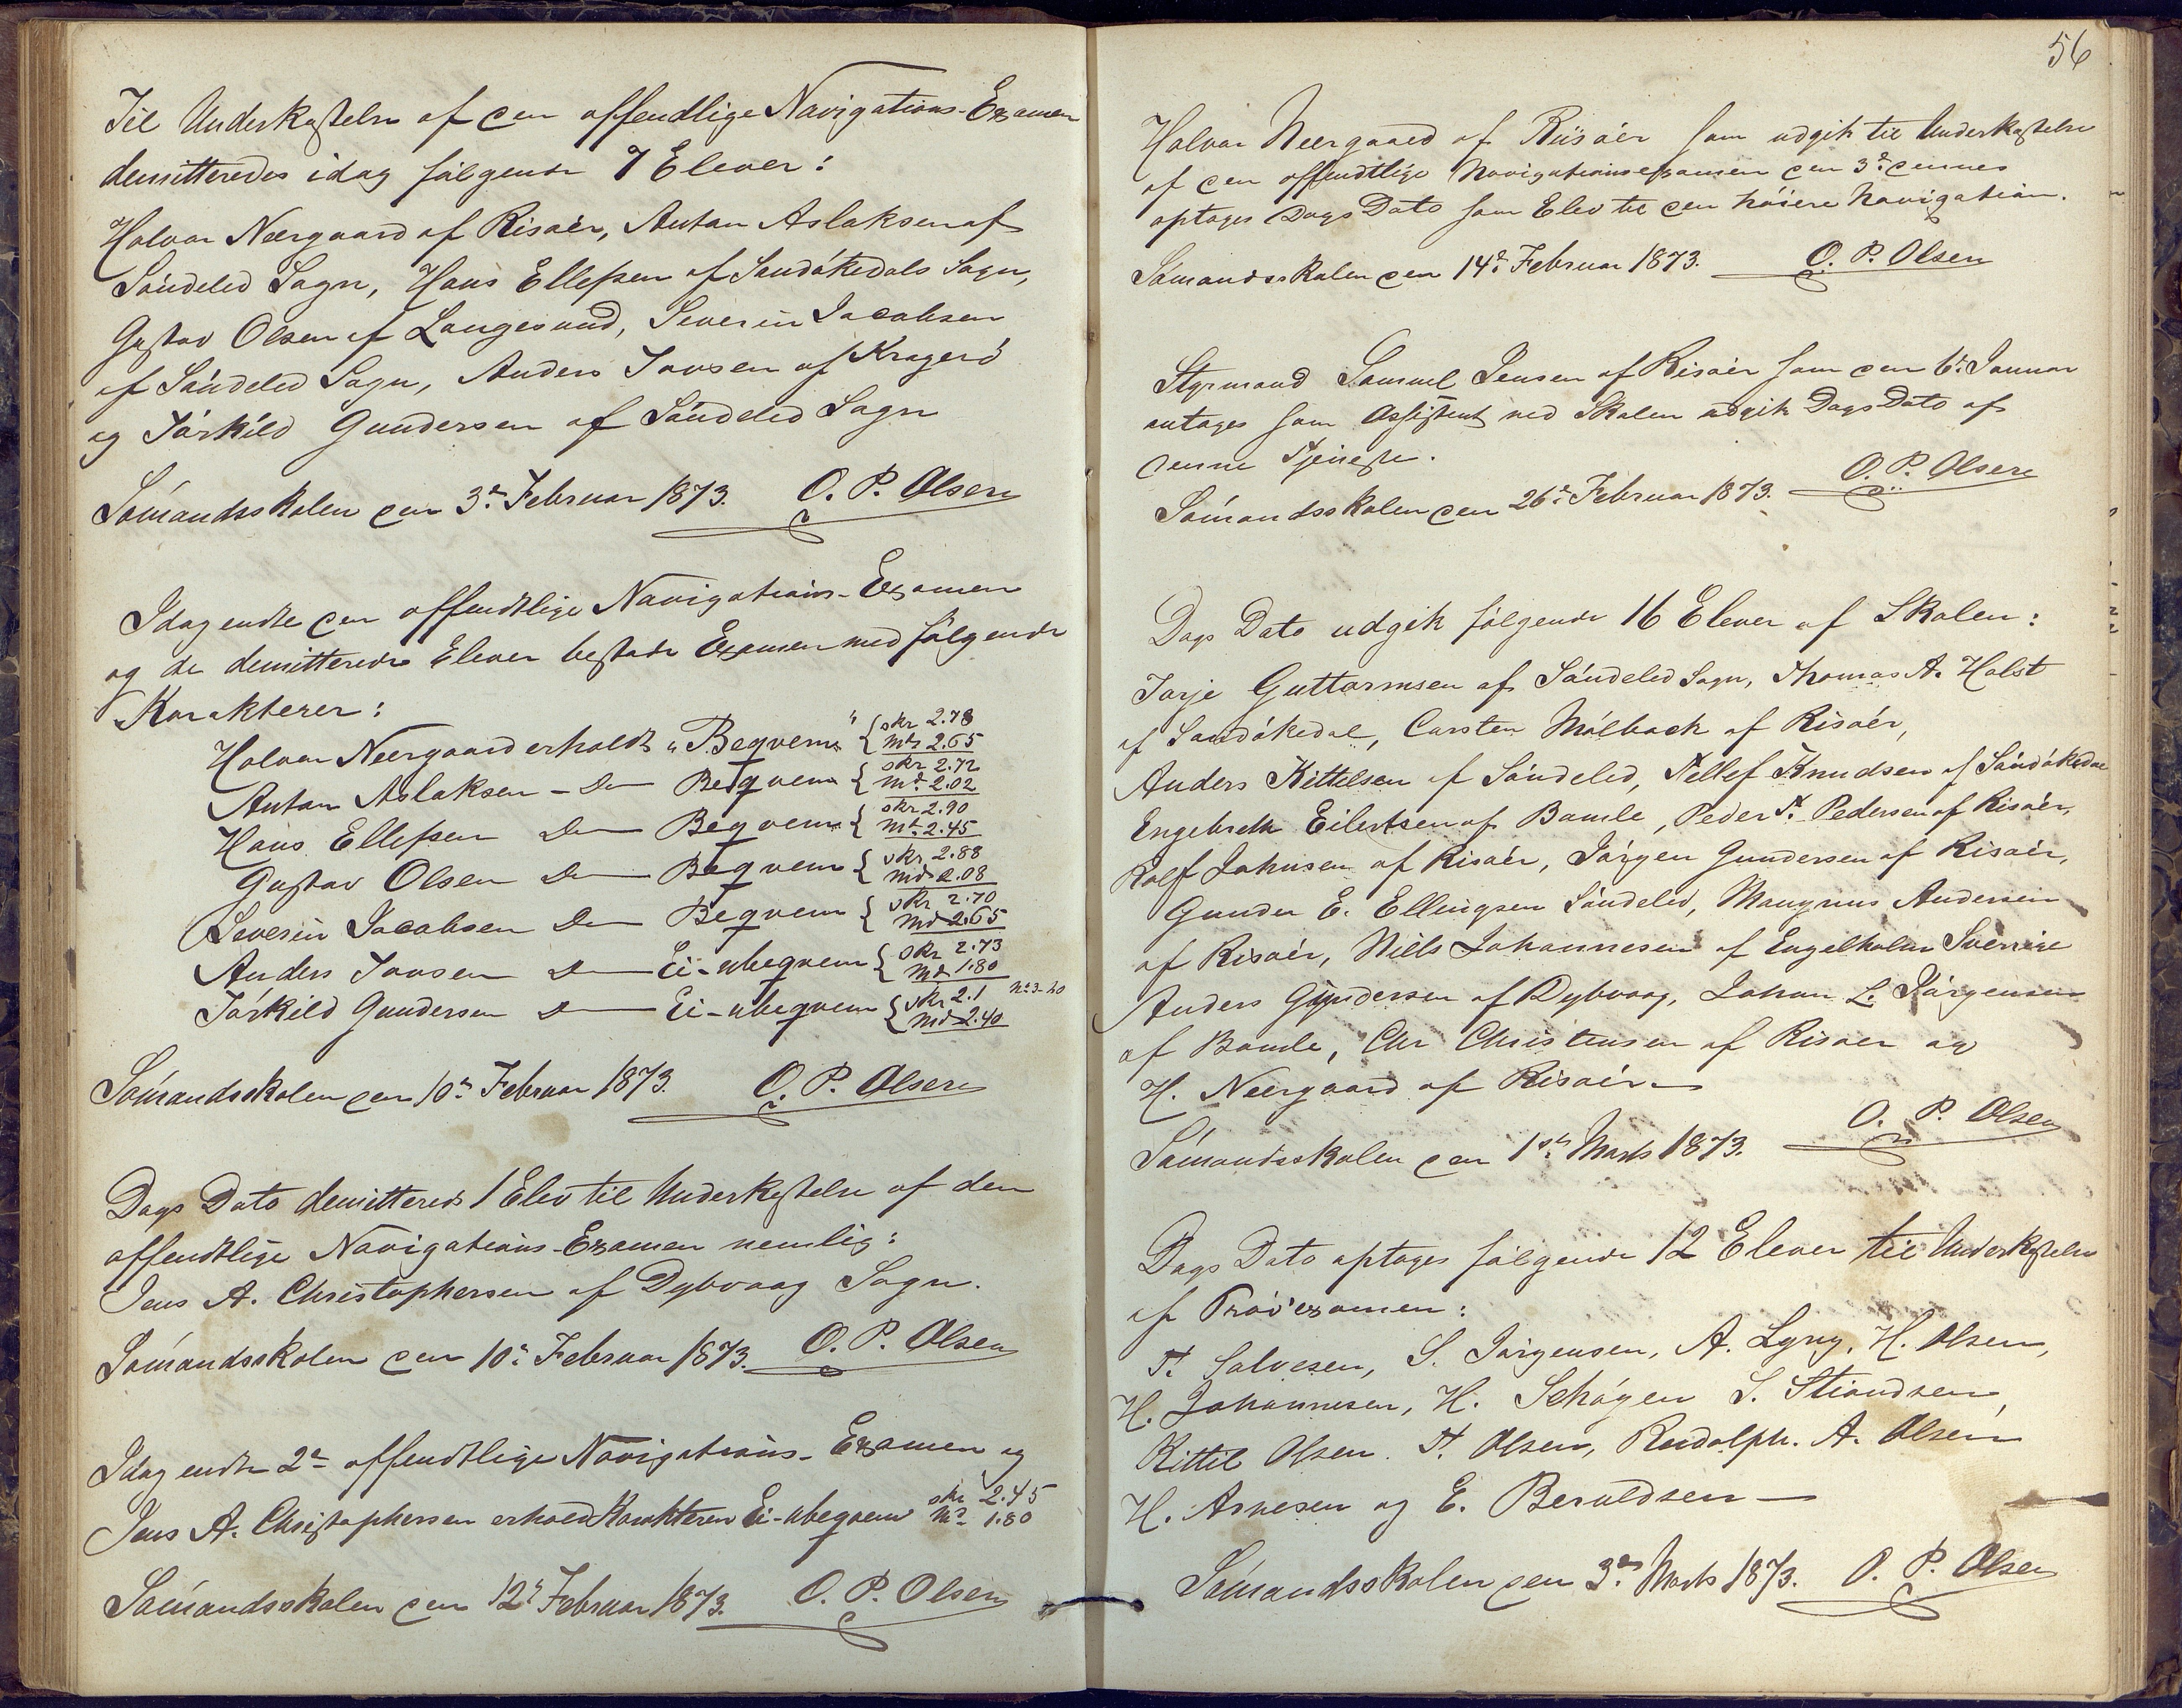 Til Underkastelse af den offendtlige Navigations-Examen
demitteredes idag følgende 7 Elever:
Halvor Neergaard af Risøer, Anton Aslaksen af
Søndeled Sogn, Hans Ellefsen af Sandøkedals Sogn,
Gustav Olsen af Langesund, Severin Jacobsen
af Søndeled Sogn, Anders Jonsen af Kragerø
og Tørkild Gundersen af Søndeled Sogn
Sømandsskolen den 3die Februar 1873. O. P. Olsen
Idag endte den offendtlige Navigations-Examen
og de demitterede Elever bestode Examen med følgende
Karakterer:
Halvor Neergaard erholdt "Beqvem" { skr 2.78 mdt 2.65
Anton Aslaksen - Do Beqvem { skr 2.72 mdt 2.02
Hans Ellefsen Do Beqvem { skr 2.90 mdt 2.45
Gustav Olsen Do Beqvem { skr 2.88 mdt 2.08
Severin Jacobsen Do Beqvem { skr 2.70 mdt 2.65
Anders Jonsen Do Ei-ubeqvem { skr 2.73 mdt 1.80
Tørkild Gundersen Do Ei-ubeqvem { skr 2.1 mdt 2.40
Sømandsskolen den 10de Februar 1873. O. P. Olsen
Dags Dato demitteredes 1 Elev til Underkastelse af den
offendtlige Navigations-Examen nemlig:
Jens A. Christophersen af Dybvaag Sogn.
Sømandsskolen den 10de Februar 1873. O. P. Olsen
Idag endte 2den offendtlige Navigations-Examen og
Jens A. Christophersen erholdt Karakteren Ei-ubeqvem skr 2.45 mdt 1.80
Sømandsskolen den 12te Februar 1873. O. P. Olsen
56
Halvor Neergaard af Riisøer som udgik til Underkastelse
af den offendtlige Navigationsexamen den 3die dennes
optages Dags Dato som Elev til den høiere Navigation.
Sømandsskolen den 14de Februar 1873. O. P. Olsen
Styrmand Samuel Jensen af Risøer som den 6te Januar
antages som Assistent ved Skolen udgik Dags Dato af
denne Tjeneste.
Sømandsskolen den 26de Februar 1873. O. P. Olsen
Dags Dato udgik følgende 16 Elever af Skolen:
Tarje Guttormsen af Søndeled Sogn, Thomas A. Holst
af Sandøkedal, Carsten Mølback af Risøer,
Anders Kittelsen af Søndeled, Tellef Knudsen af Sandøkedal
Engebreth Eilertsen af Bamle, Peder T. Pedersen af Risøer,
Rolf Johnsen af Risøer, Jørgen Gundersen af Risøer,
Gunder E. Ellingsen Søndeled, Mangnus Andersen
af Risøer, Niels Johannesen af Engelholm Sverrige
Anders Gundersen af Dybvaag, Johan L. Jørgensen
af Bamle, Chr Christensen af Risøer og
H. Neergaard af Risøer.
Sømandsskolen den 1ste Marts 1873. O. P. Olsen
Dags Dato optages følgende 12 Elever til Underkastelse
af Prøvexamen:
T. Salvesen, S. Jørgensen, A. Lyng, H. Olsen,
H. Johannesen, H. Schøgen S. Stiandsen,
Kittil Olsen. T. Olsen, Rudolph. A. Olsen
H. Arnesen og E. Beruldsen
Sømandsskolen den 3die Marts 1873. O. P. Olsen